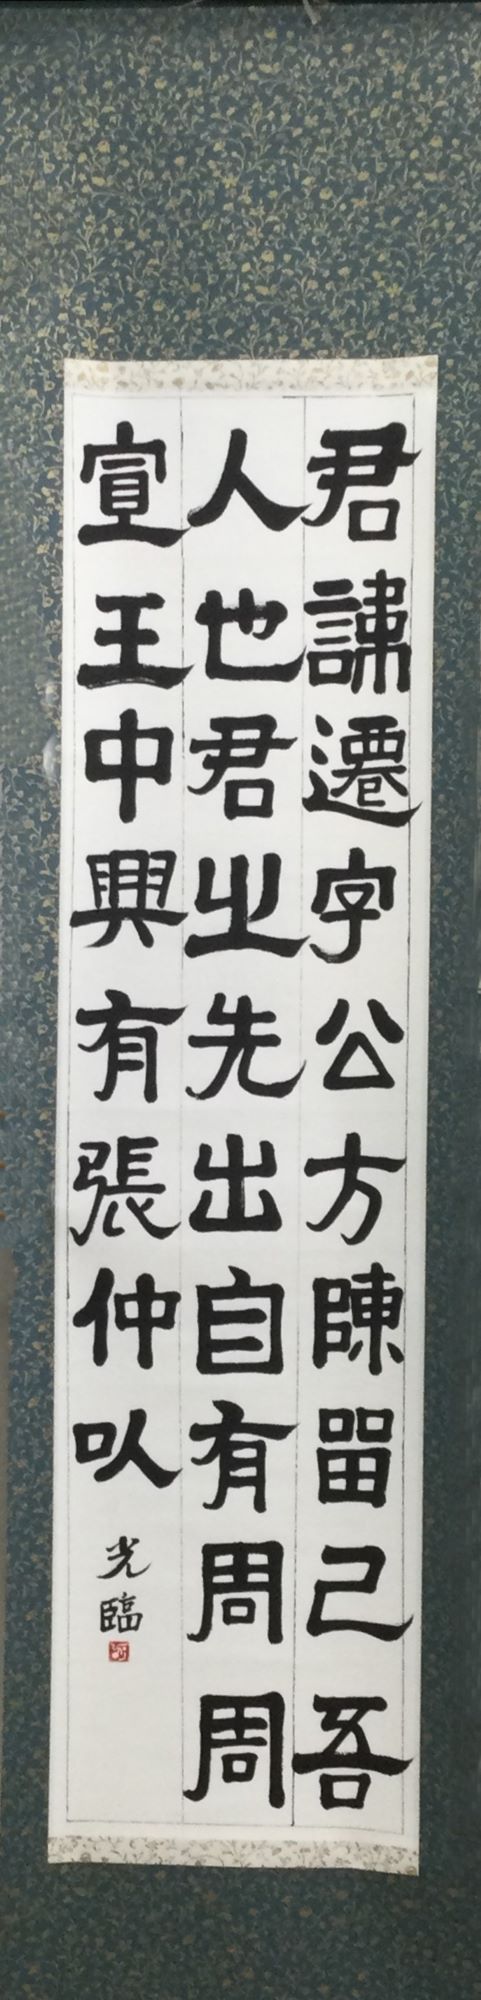 君諱遷字公方陳留己吾
人也君之先出自有周周
宣王中興有張仲以
光臨